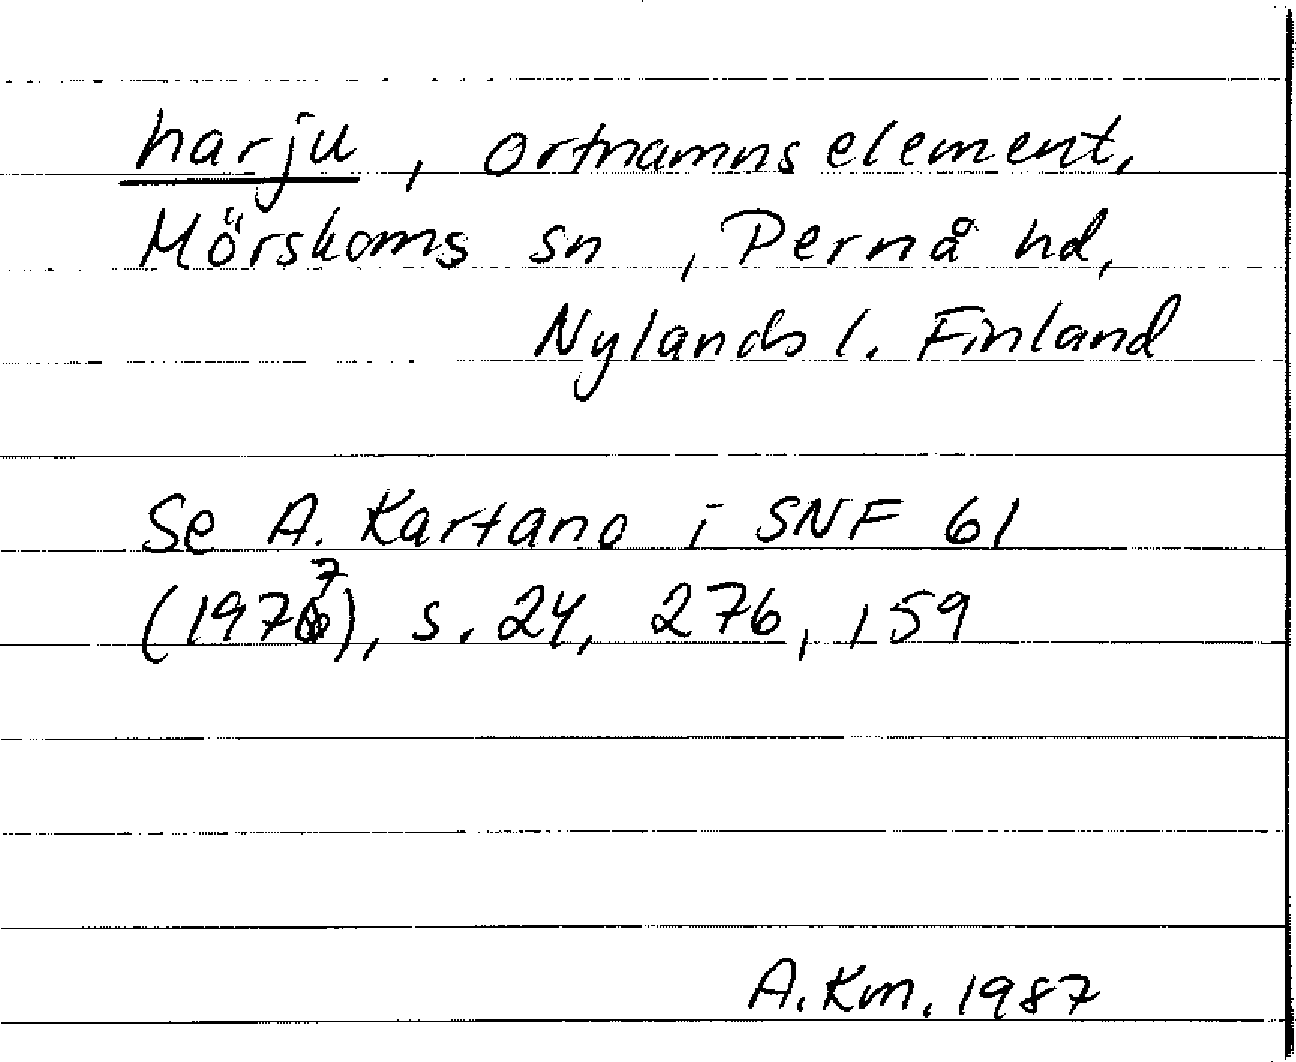 harju, ortnamnselement,
Mörskoms sn, Pernå hd,
Nylands l. Finland
Se A. Kartano i SNF 61
(1977), s. 24, 276, 159
A. Km. 1987